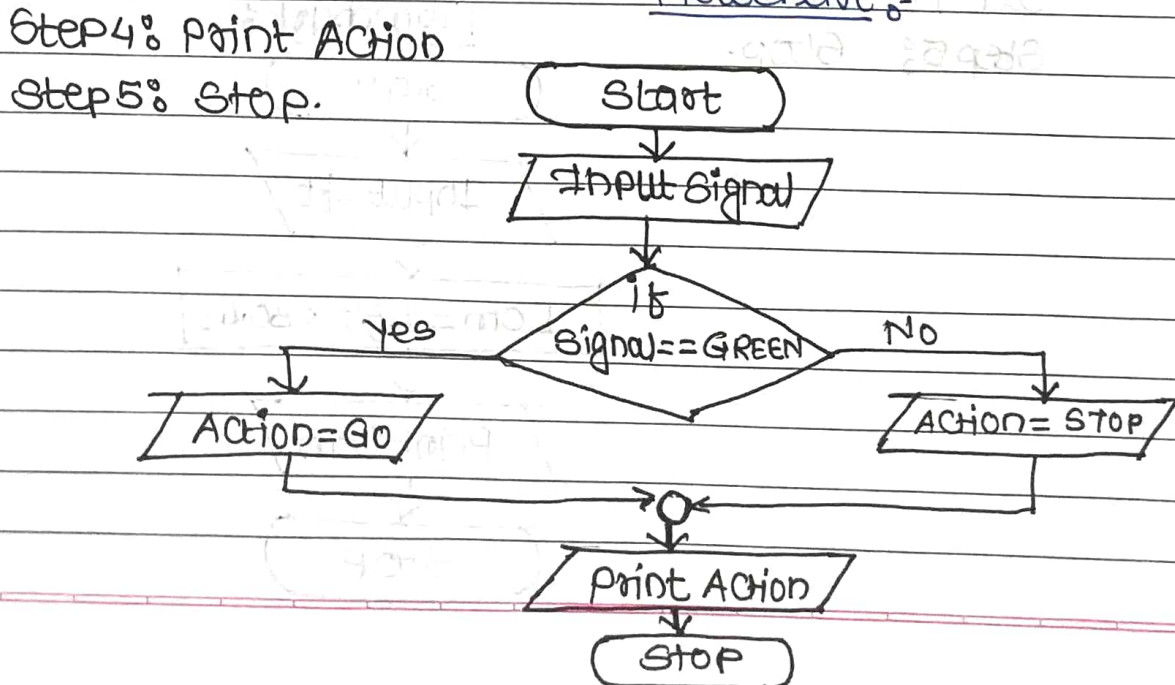 Flowchart :
Step4: Print Action
Step5: Stop.
Start
Input Signal
if
Signal==GREEN
yes
No
Action=GO
Action= STOP
Print Action
Stop